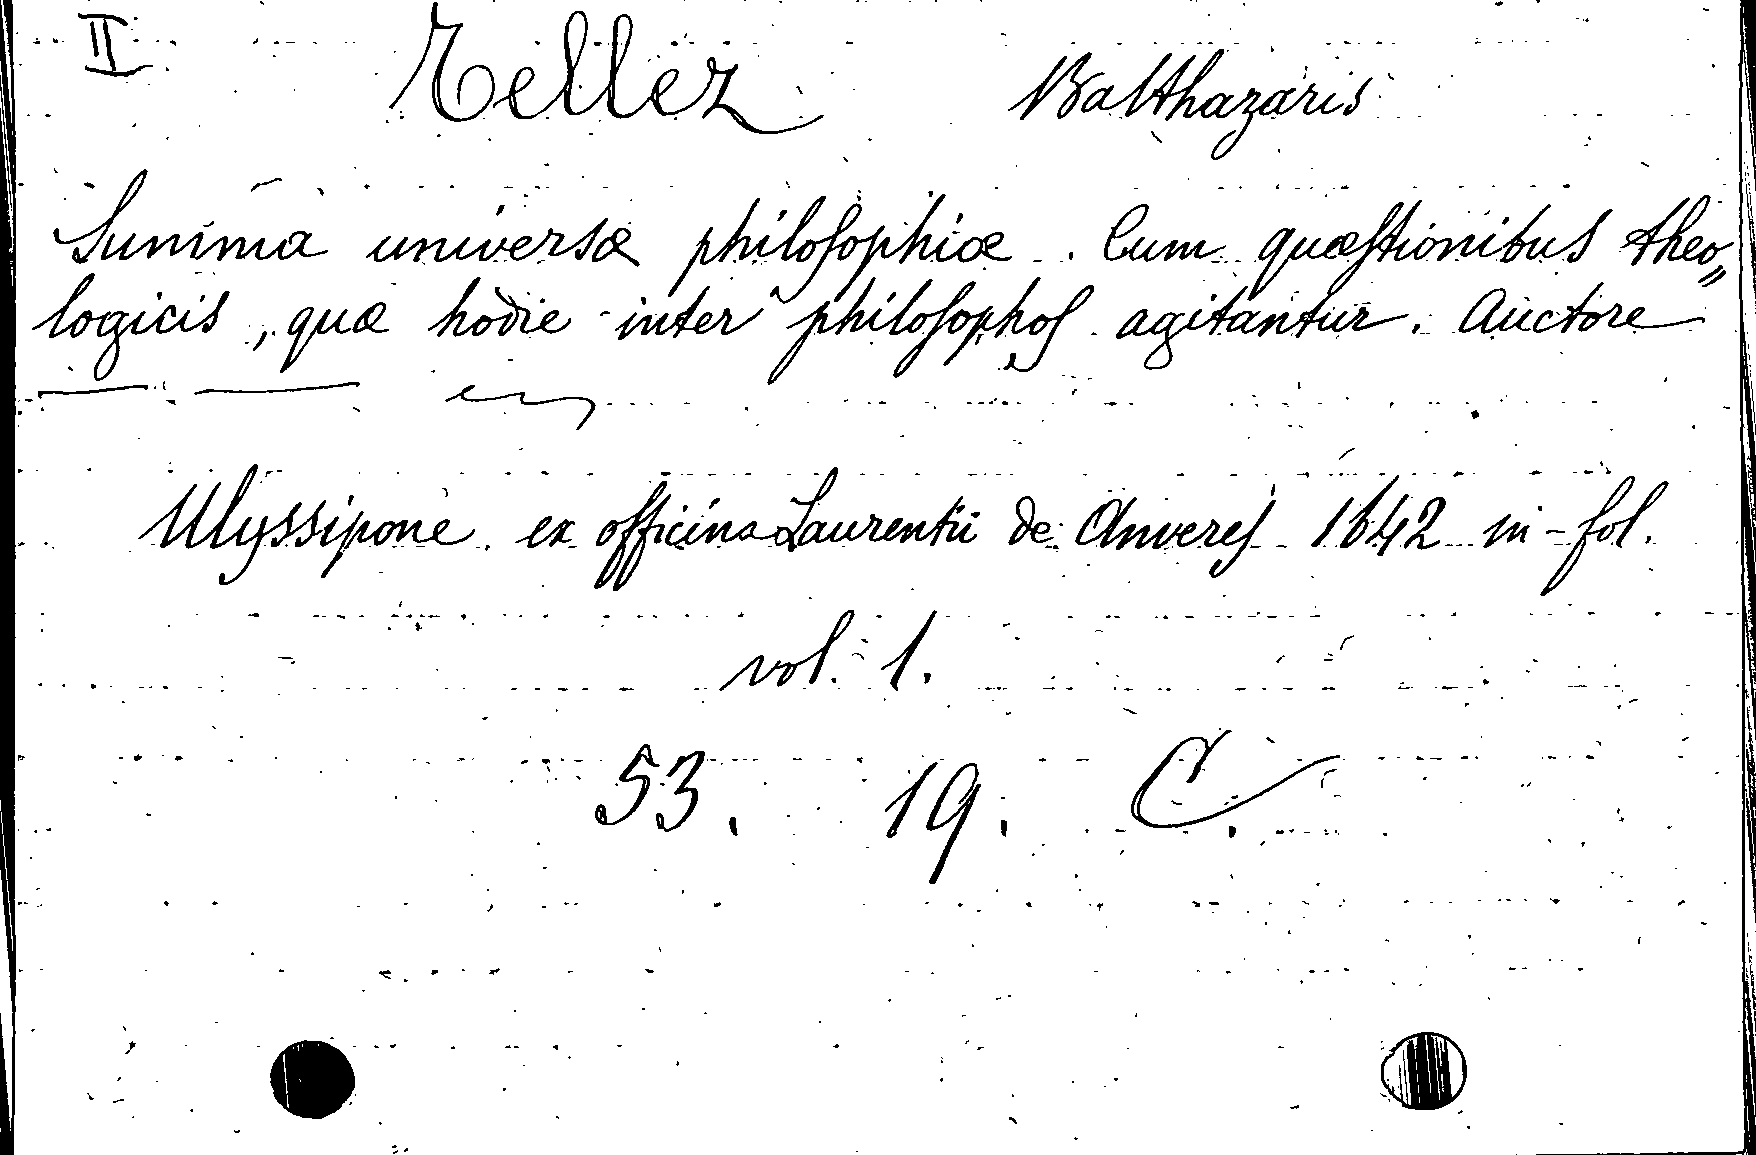 II Tellez Balthazaris
Summa universæ philosophiæ. Cum quæstionibus theo„
logicis, quæ hodie inter philosophos agitantur. Auctore
Ulyssipone ex officina Laurentii de Anveres 1642 in-fol.
vol. 1.
53. 19. C.